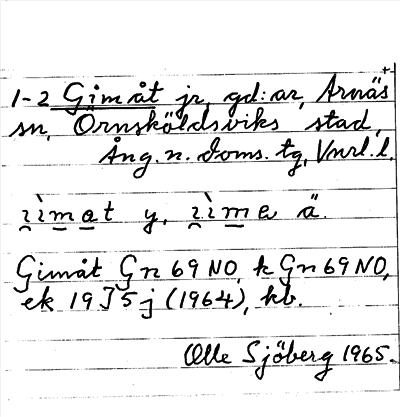 1-2 Gimåt jr, gd:ar, Arnäs
sn, Örnsköldsviks stad,
Ång. n. doms. tg, Vnrl. l.
y, ä.
Gimåt Gn 69 NO, k Gn 69 NO,
ek 19 J 5 j (1964), kb.
Olle Sjöberg 1965.